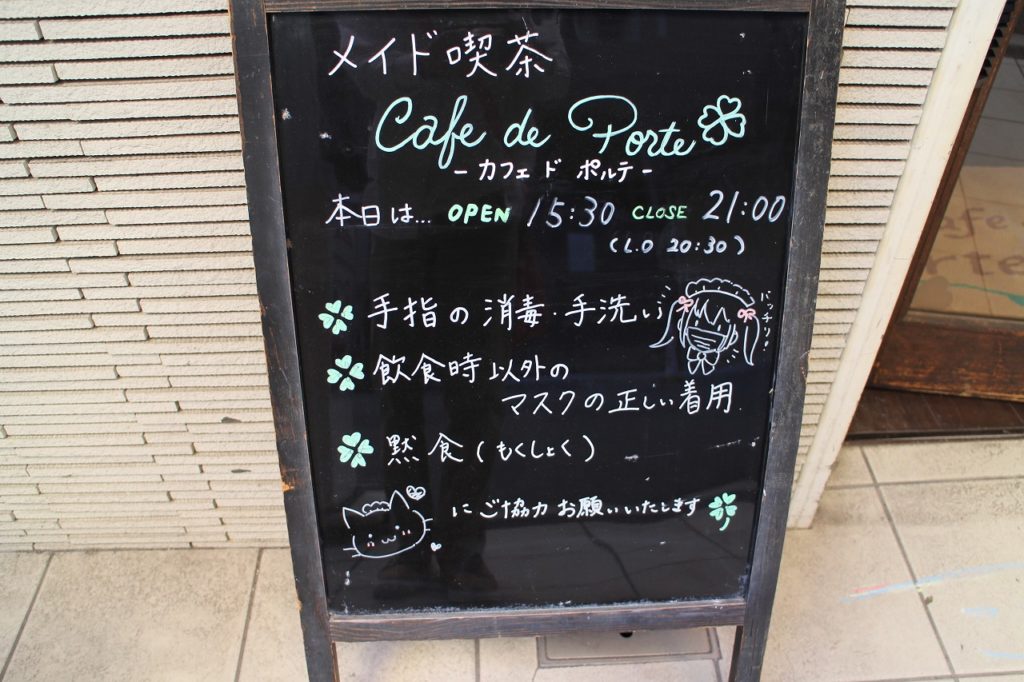 メイド喫茶
Cafe de Porte
-カフェ ド ポルテ-
本日は... OPEN 15:30 CLOSE 21:00
(L.O 20:30)
手指の消毒・手洗い
バッチリ!
飲食時以外の
マスクの正しい着用
黙食(もくしょく)
にご協力お願いいたします